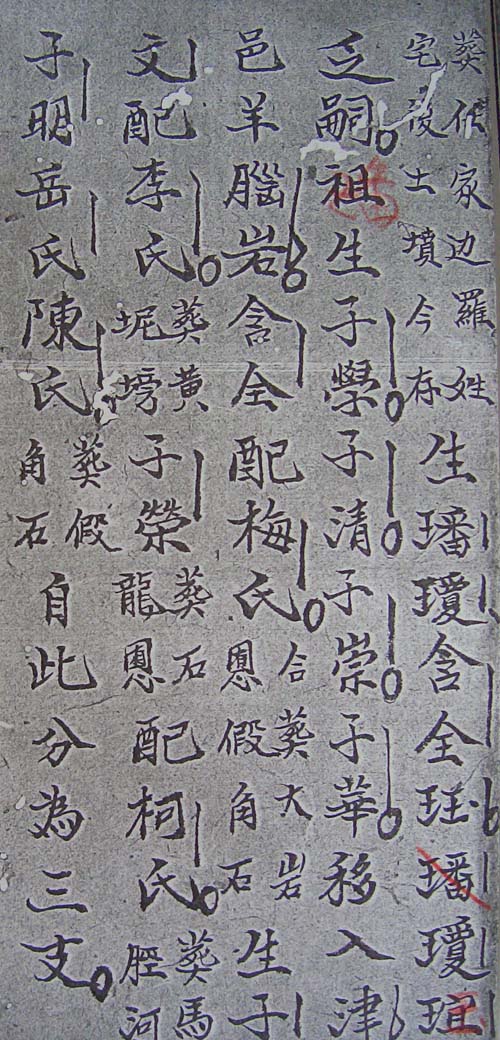 葬家边羅姓宅後土墳今存生璠瓊含全珏璠瓊瑄
乏嗣祖生子學子清子崇子華移入津
邑羊腦岩含全配梅氏合葬大岩恩假角石生子
文配李氏葬黄坭塝子榮葬石龍恩配柯氏葬馬脛河
子明岳氏陳氏葬假角石自此分為三支